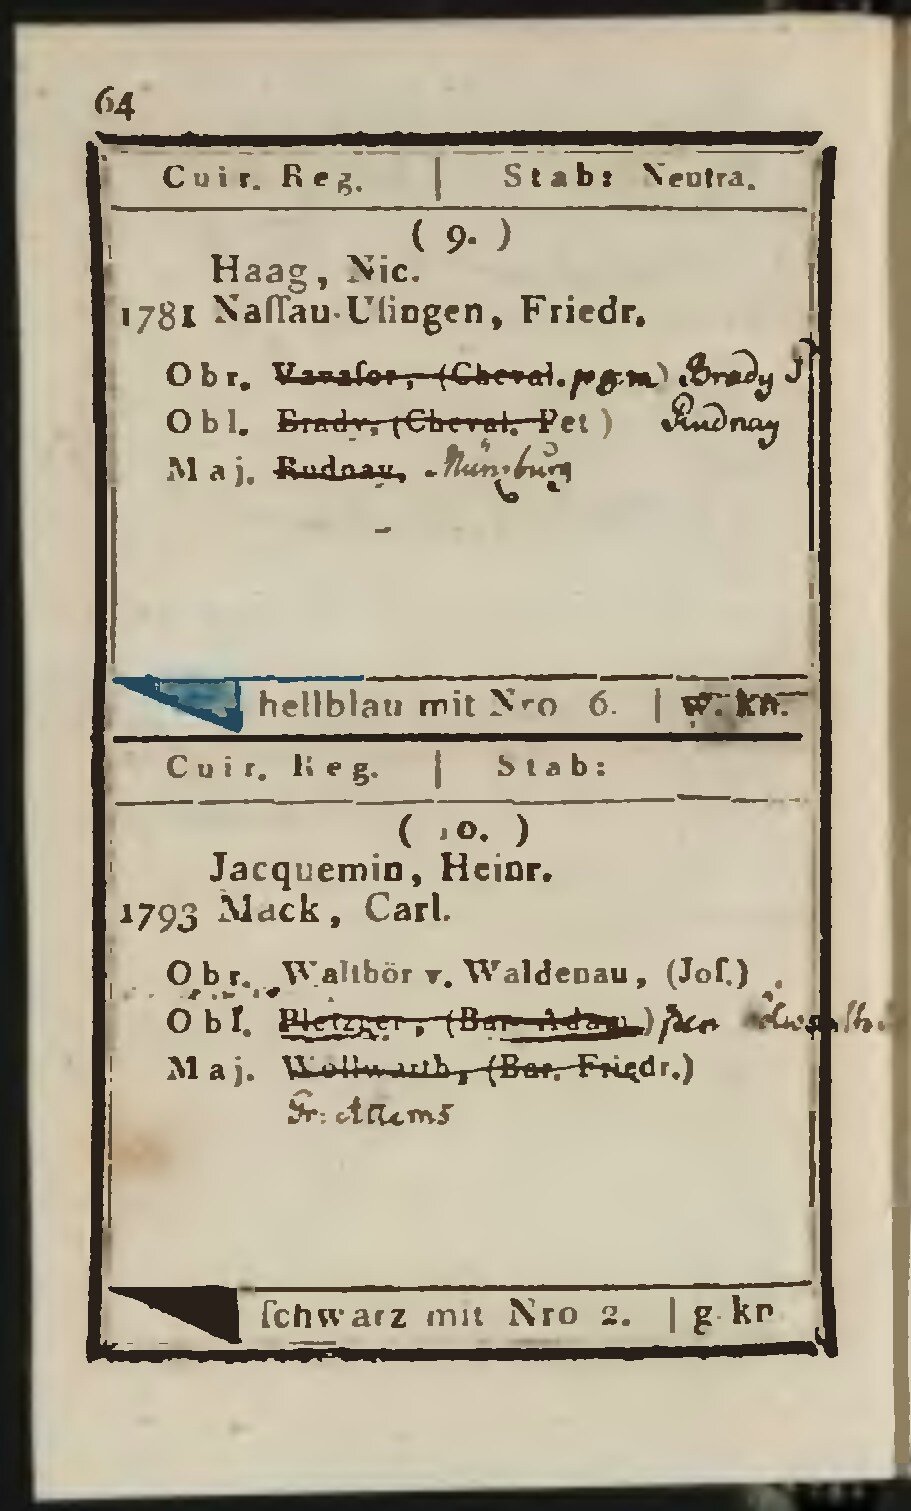 64
Cuir. Reg. | Stab: Neutra.
( 9. )
Haag, Nic.
1781 Naſſau-Uſingen, Friedr.
Obr. Vavaſor, (Cheval. pgm) Brady
Obl. Brady, (Cheval. Pet) Rudnay
Maj. Rudnay,
hellblau mit Nro 6. | w. kn.
Cuir. Reg. | Stab:
( 10. )
Jacquemin, Heinr.
1793 Mack, Carl.
Obr. Waltbör v. Waldenau, (Joſ.)
Obl. Pletzger, (Bar. Adam) pen
Maj. Wöllwarth, (Bar. Friedr.)
Gr: Attems
ſchwarz mit Nro 2. | g. kn